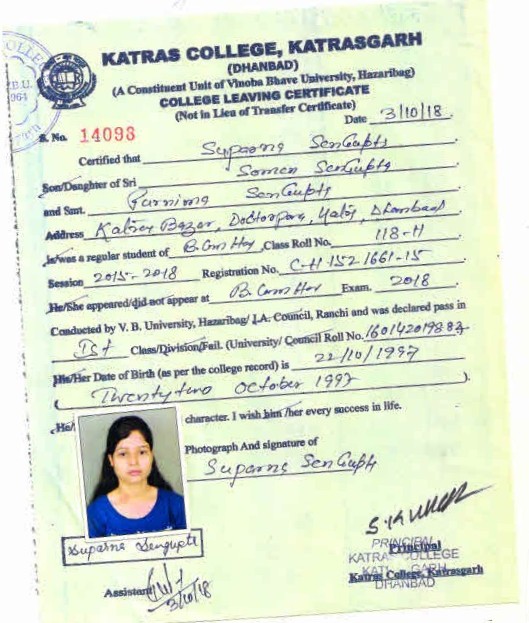 KATRAS COLLEGE, KATRASGARH
(DHANBAD)
(A Constituent Unit of Vinoba Bhave University, Hazaribag)
COLLEGE LEAVING CERTIFICATE
(Not in Lieu of Transfer Certificate)
Date 3/10/18.
S. No. 14093
Certified that Suparna SenGupta
Son/Daughter of Sri Somen SenGupta
and Smt. Purnima SenGupta
Address Katras Bazar, Dhanbad
Is/was a regular student of B.Com Hon Class Roll No. 118-H
Session 2015-2018 Registration No. C-H-152 1661-15
He/She appeared/did not appear at B.Com Hon Exam. 2018
Conducted by V. B. University, Hazaribag/ I.A. Council, Ranchi and was declared pass in
Ist Class/Division/Fail. (University/ Council Roll No. 160142019883
His/Her Date of Birth (as per the college record) is 22/10/1997
( Twenty two October 1997 ).
He/ character. I wish him /her every success in life.
Photograph And signature of
Suparna SenGupta
Suparna Sengupta
PRINCIPAL
Principal
KATRAS COLLEGE
Katras College, Katrasgarh
DHANBAD
Assistant
3/10/18